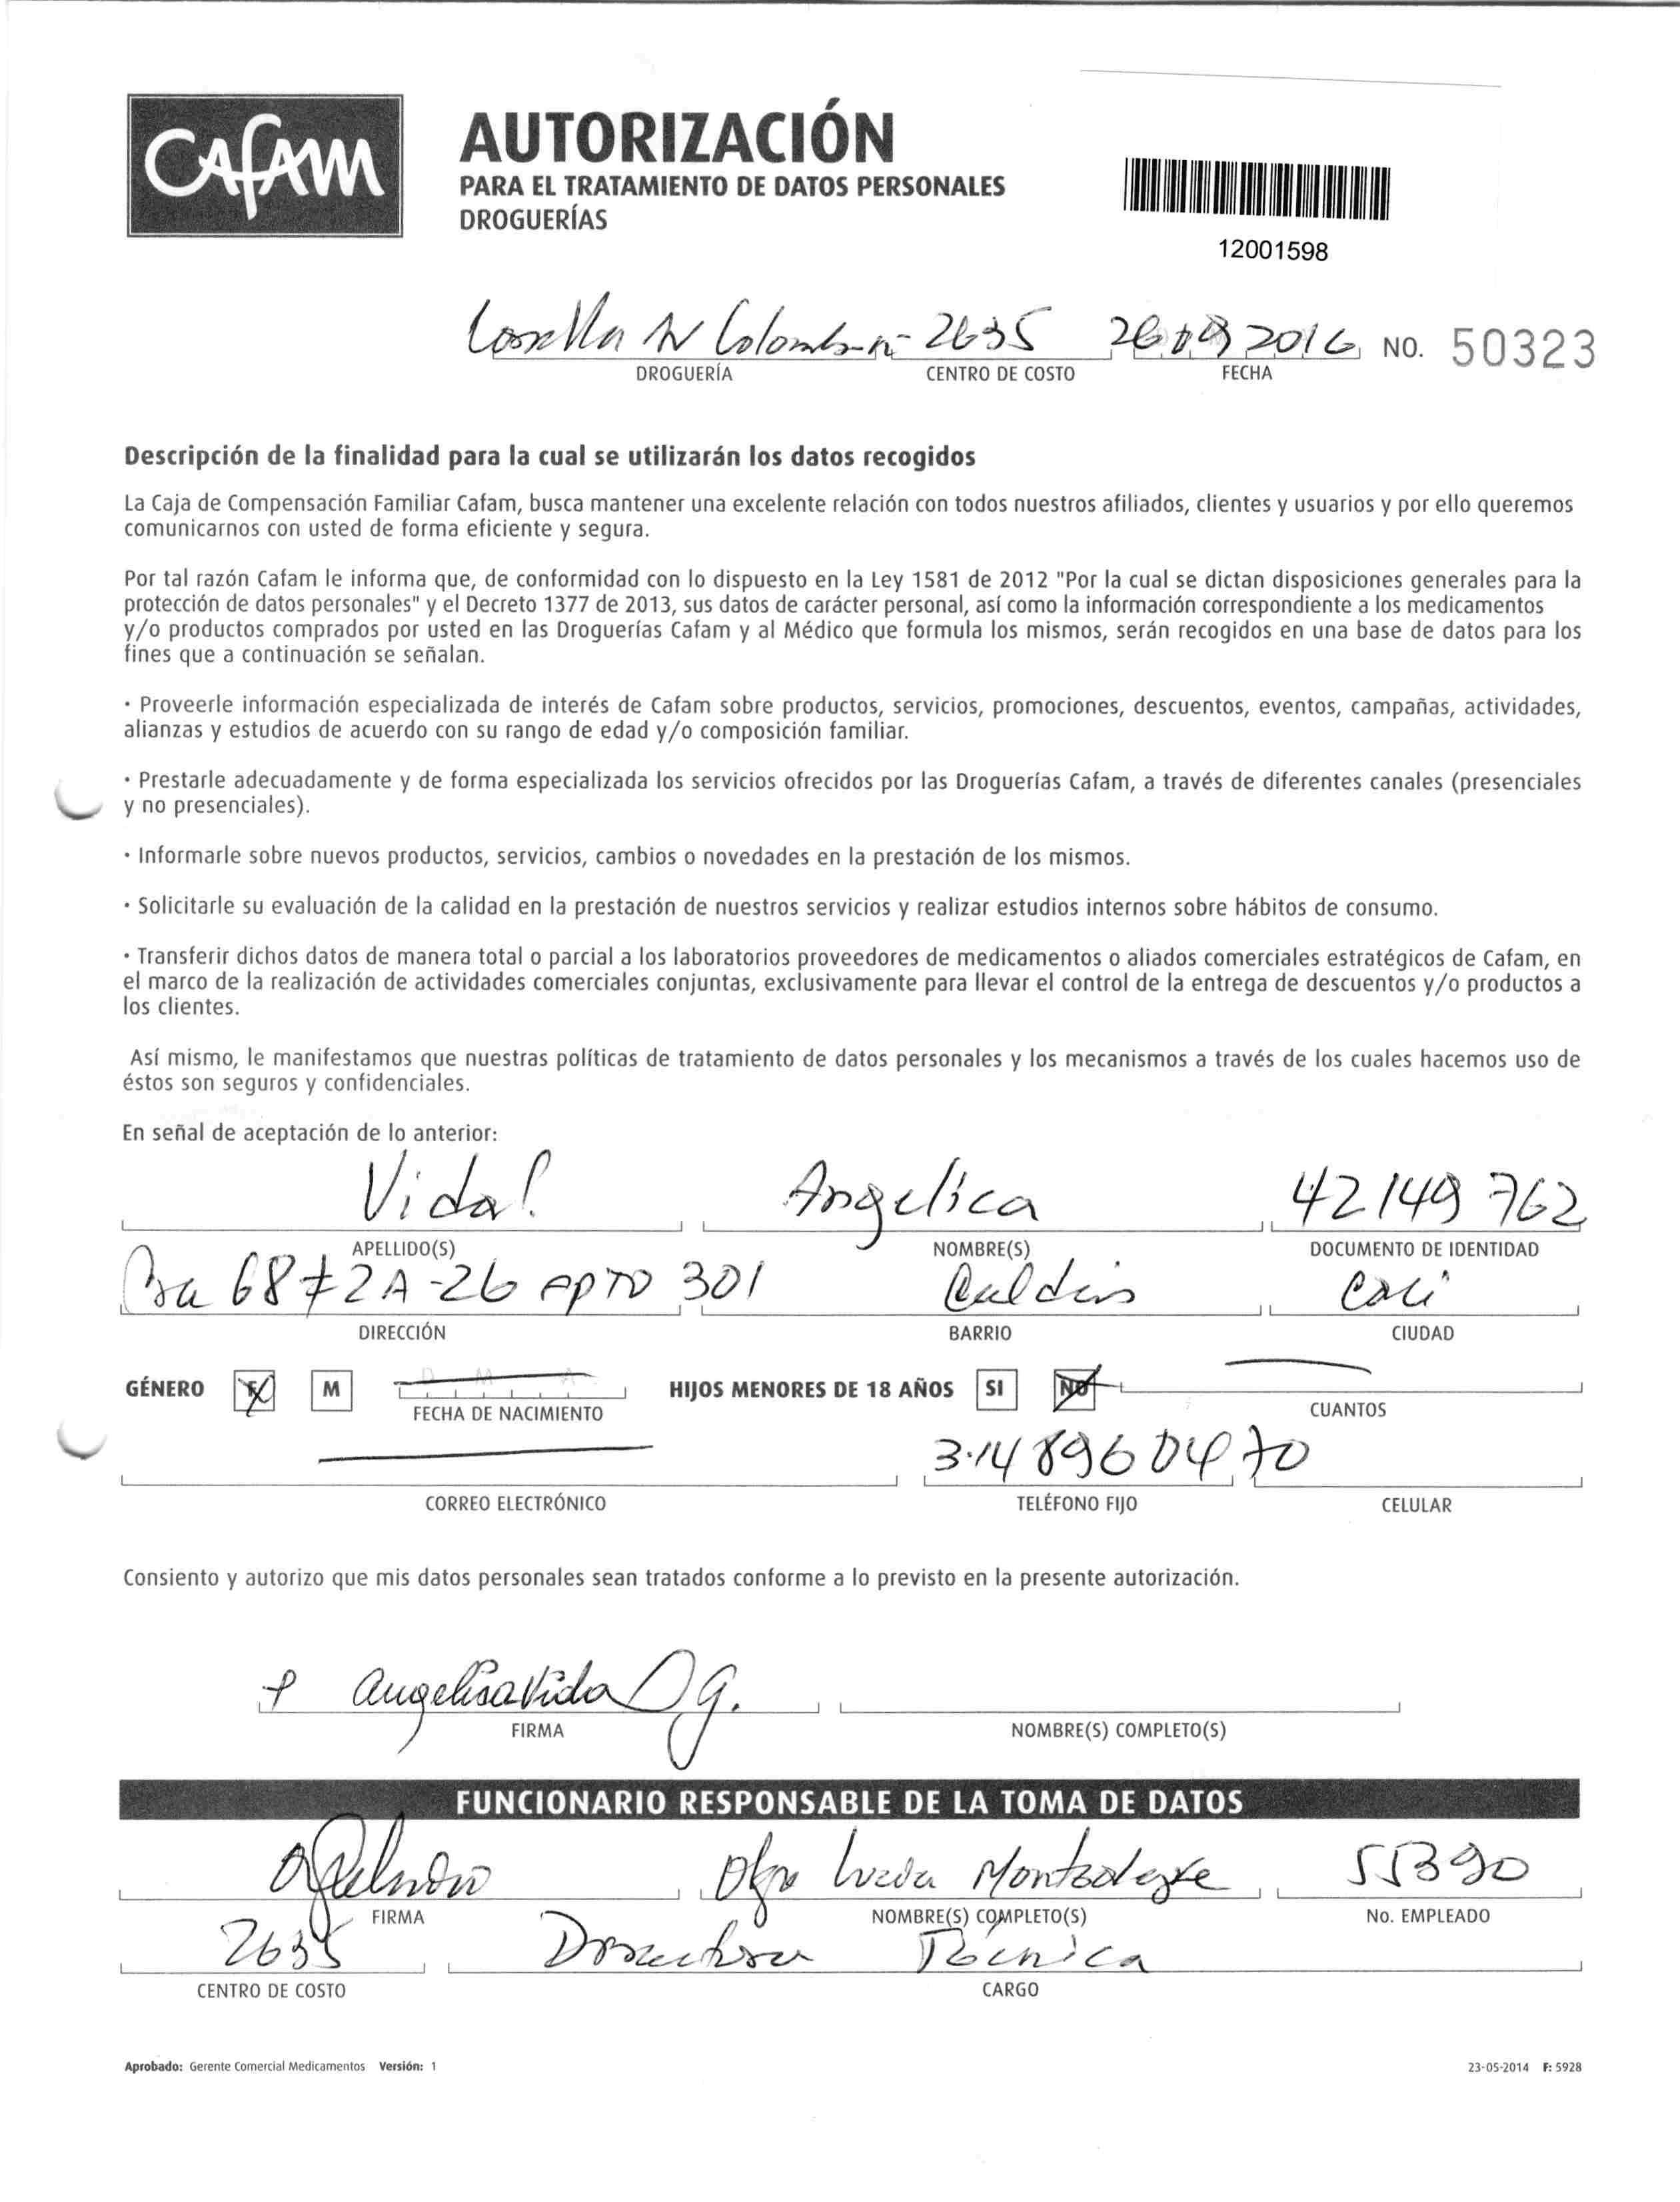 Cafam
AUTORIZACIÓN
PARA EL TRATAMIENTO DE DATOS PERSONALES
DROGUERÍAS
12001598
2635 2016 NO. 50323
DROGUERÍA CENTRO DE COSTO FECHA
Descripción de la finalidad para la cual se utilizarán los datos recogidos
La Caja de Compensación Familiar Cafam, busca mantener una excelente relación con todos nuestros afiliados, clientes y usuarios y por ello queremos
comunicarnos con usted de forma eficiente y segura.
Por tal razón Cafam le informa que, de conformidad con lo dispuesto en la Ley 1581 de 2012 "Por la cual se dictan disposiciones generales para la
protección de datos personales" y el Decreto 1377 de 2013, sus datos de carácter personal, así como la información correspondiente a los medicamentos
y/o productos comprados por usted en las Droguerías Cafam y al Médico que formula los mismos, serán recogidos en una base de datos para los
fines que a continuación se señalan.
· Proveerle información especializada de interés de Cafam sobre productos, servicios, promociones, descuentos, eventos, campañas, actividades,
alianzas y estudios de acuerdo con su rango de edad y/o composición familiar.
· Prestarle adecuadamente y de forma especializada los servicios ofrecidos por las Droguerías Cafam, a través de diferentes canales (presenciales
y no presenciales).
· Informarle sobre nuevos productos, servicios, cambios o novedades en la prestación de los mismos.
· Solicitarle su evaluación de la calidad en la prestación de nuestros servicios y realizar estudios internos sobre hábitos de consumo.
· Transferir dichos datos de manera total o parcial a los laboratorios proveedores de medicamentos o aliados comerciales estratégicos de Cafam, en
el marco de la realización de actividades comerciales conjuntas, exclusivamente para llevar el control de la entrega de descuentos y/o productos a
los clientes.
Así mismo, le manifestamos que nuestras políticas de tratamiento de datos personales y los mecanismos a través de los cuales hacemos uso de
éstos son seguros y confidenciales.
En señal de aceptación de lo anterior:
Vidal Angelica 42149762
APELLIDO(S) NOMBRE(S) DOCUMENTO DE IDENTIDAD
68 # 2A-26 apto 301 Caldas Cali
DIRECCIÓN BARRIO CIUDAD
GÉNERO F M HIJOS MENORES DE 18 AÑOS SI NO
FECHA DE NACIMIENTO CUANTOS
3148960470
CORREO ELECTRÓNICO TELÉFONO FIJO CELULAR
Consiento y autorizo que mis datos personales sean tratados conforme a lo previsto en la presente autorización.
Angelica Vidal G.
FIRMA NOMBRE(S) COMPLETO(S)
FUNCIONARIO RESPONSABLE DE LA TOMA DE DATOS
Olga Lucia Montealegre 55390
FIRMA NOMBRE(S) COMPLETO(S) No. EMPLEADO
2635 Directora Técnica
CENTRO DE COSTO CARGO
Aprobado: Gerente Comercial Medicamentos Versión: 1 23-05-2014 F: 5928